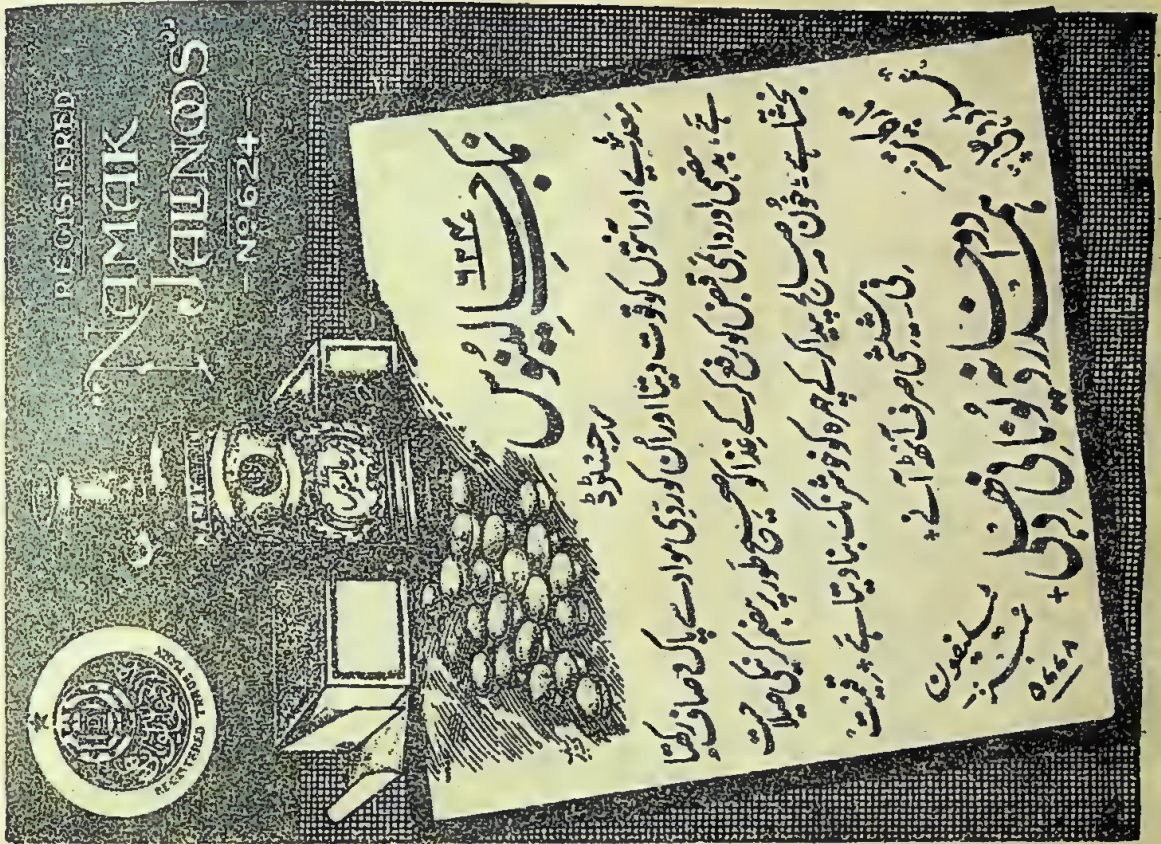 REGISTERED
"NAMAK
JALINOOS"
—No 624—
REGISTERED TRADE MARK
نمک جالینوس
۶۲۴
رجسٹرڈ
معدے اور آنتوں کو قوت دیتا اور اُن کو ردّی مواد سے پاک و صاف رکھتا
ہے، بدہضمی اور دائمی قبض کو رفع کرکے غذا کو صحیح طور پر ہضم کرنیکی صلاحیت
بخشتا ہے، خون صالح پیدا کرکے چہرہ کو خوشرنگ بنا دیتا ہے، قیمت
فی شیشی صرف آٹھ آنے،
ہمدرد دواخانہ یونانی دہلی
ٹیلیفون
نمبر